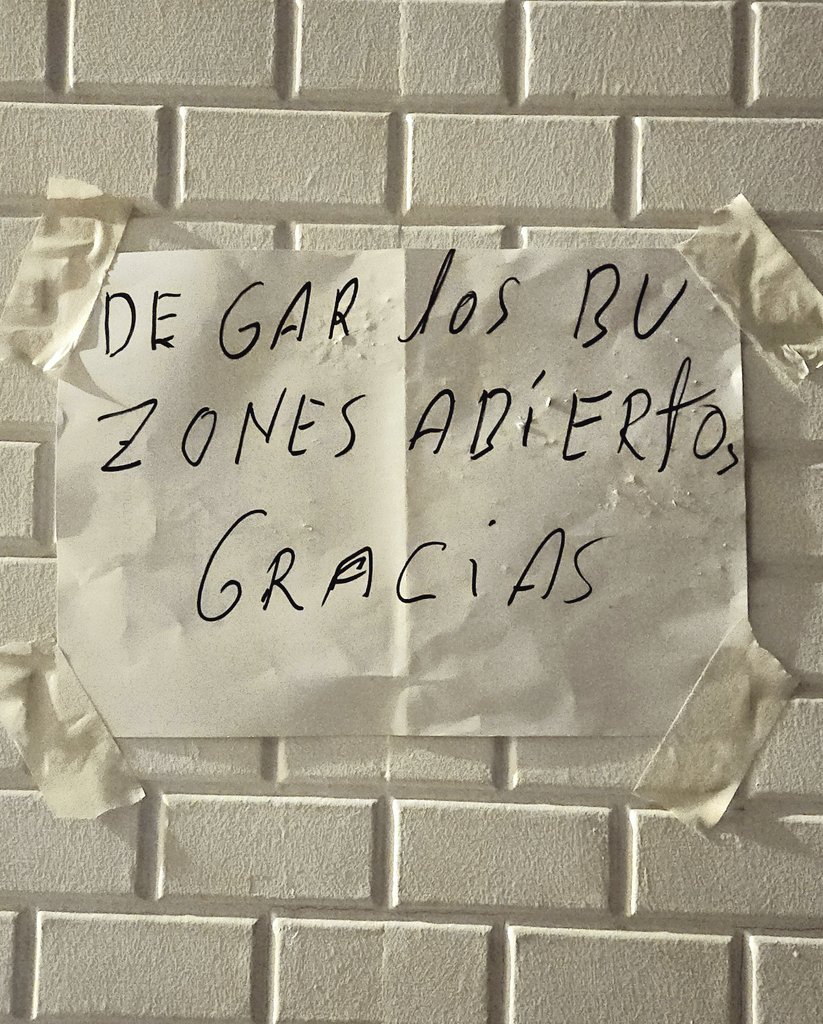 DEGAR los BU
ZONES ABiERtOs
GRACiAS